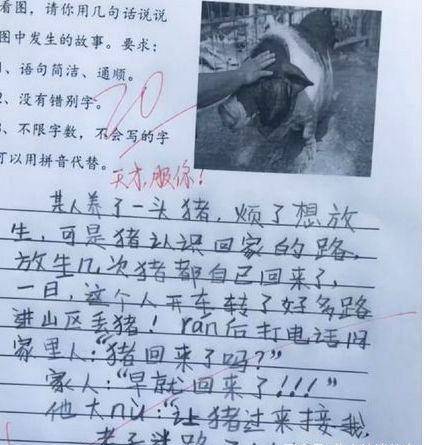 看图，请你用几句话说说
图中发生的故事。要求：
1、语句简洁、通顺。
2、没有错别字。
3、不限字数，不会写的字
可以用拼音代替。
20
天才，服你！
某人养了一头猪，烦了想放
生，可是猪认识回家的路，
放生几次猪都自己回来了，
一日，这个人开车转了好多路
进山区丢猪！rán后打电话问
家里人："猪回来了吗？"
家人："早就回来了！！！"
他大nù："让猪过来接我，
老子迷路了